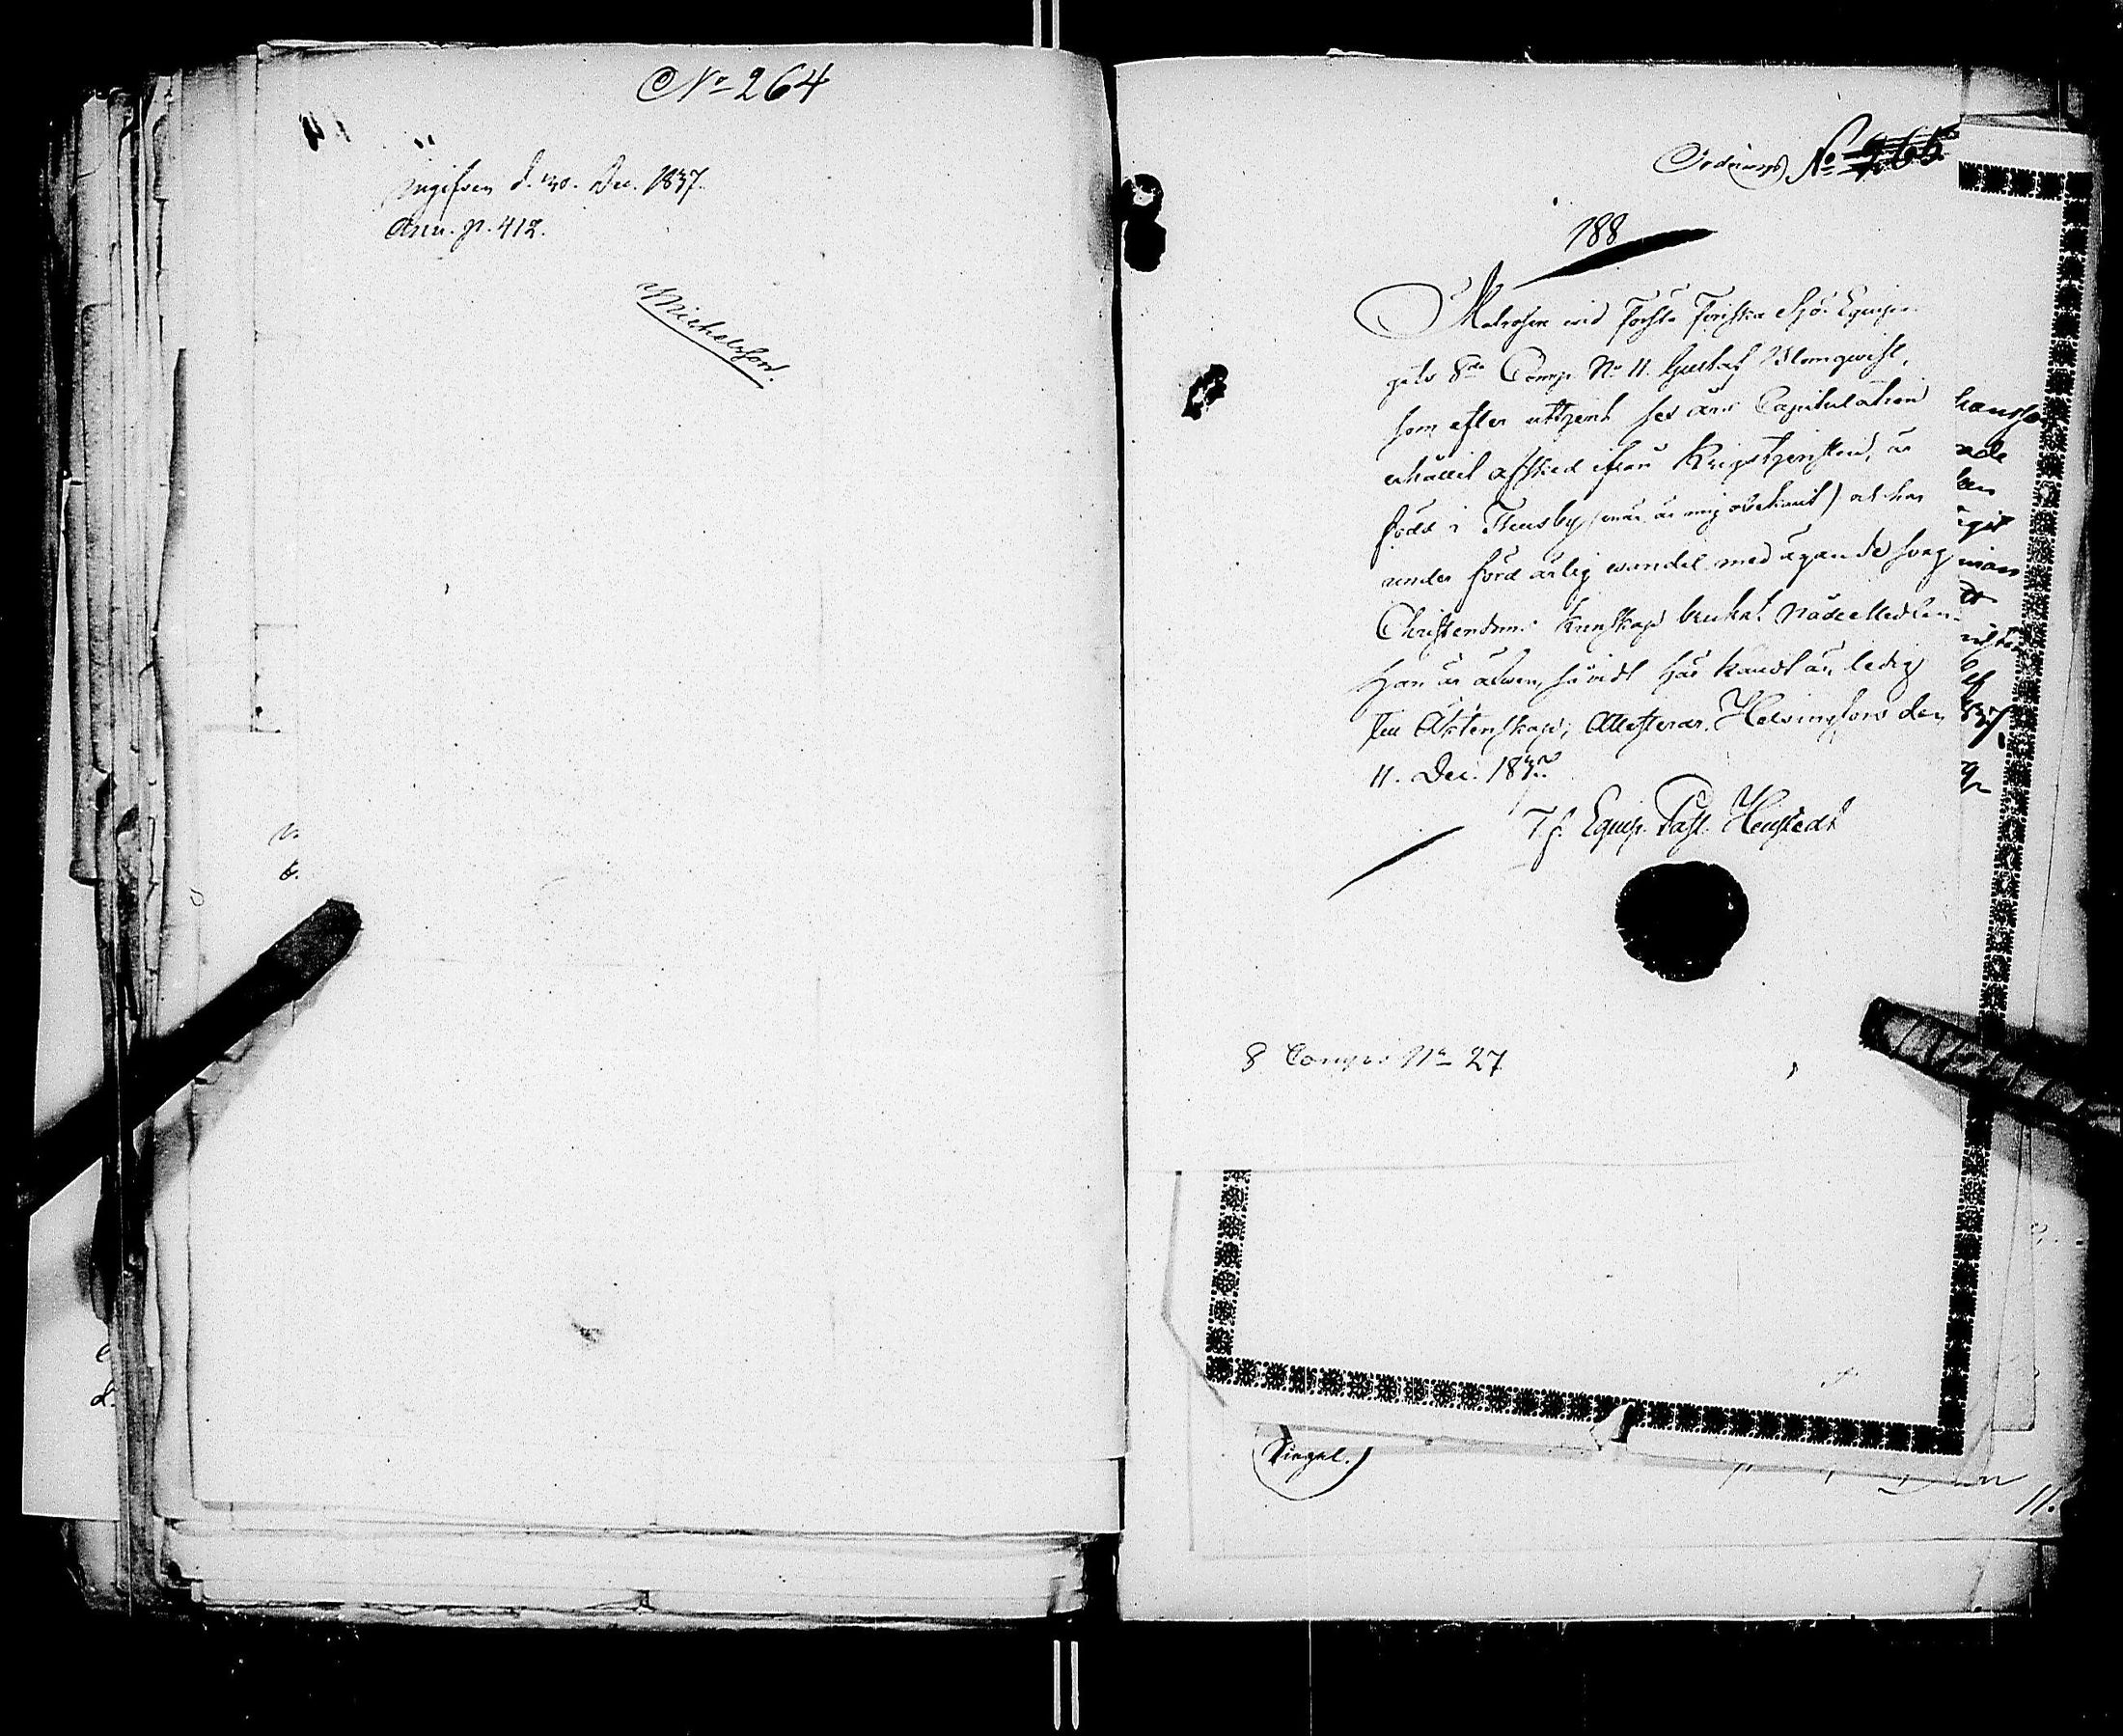 No 264
Ingifven d. 30. Dec. 1837.
Ann. p. 412.
Michelsson.
No 265
188
Matrosen vid Första Finska Sjö-Equipa-
gets 8de Comp. No 11. Gustaf Blomqvist,
som efter uttjent sex års Capitulation
erhållit afsked ifrån Krigstjensten, är
född i Thusby (när är mig obekant) och har
under förd ärlig vandel med ägande svag
Christendoms kunskap brukat Nådemedlen.
Han är äfven, så vidt här kändt är, ledig
till Äktenskap; Attesterar. Helsingfors den
11. Dec. 1837
T.f. Equip. Past. Heurstedt
8 Comp. No 27
Sigel.
11.